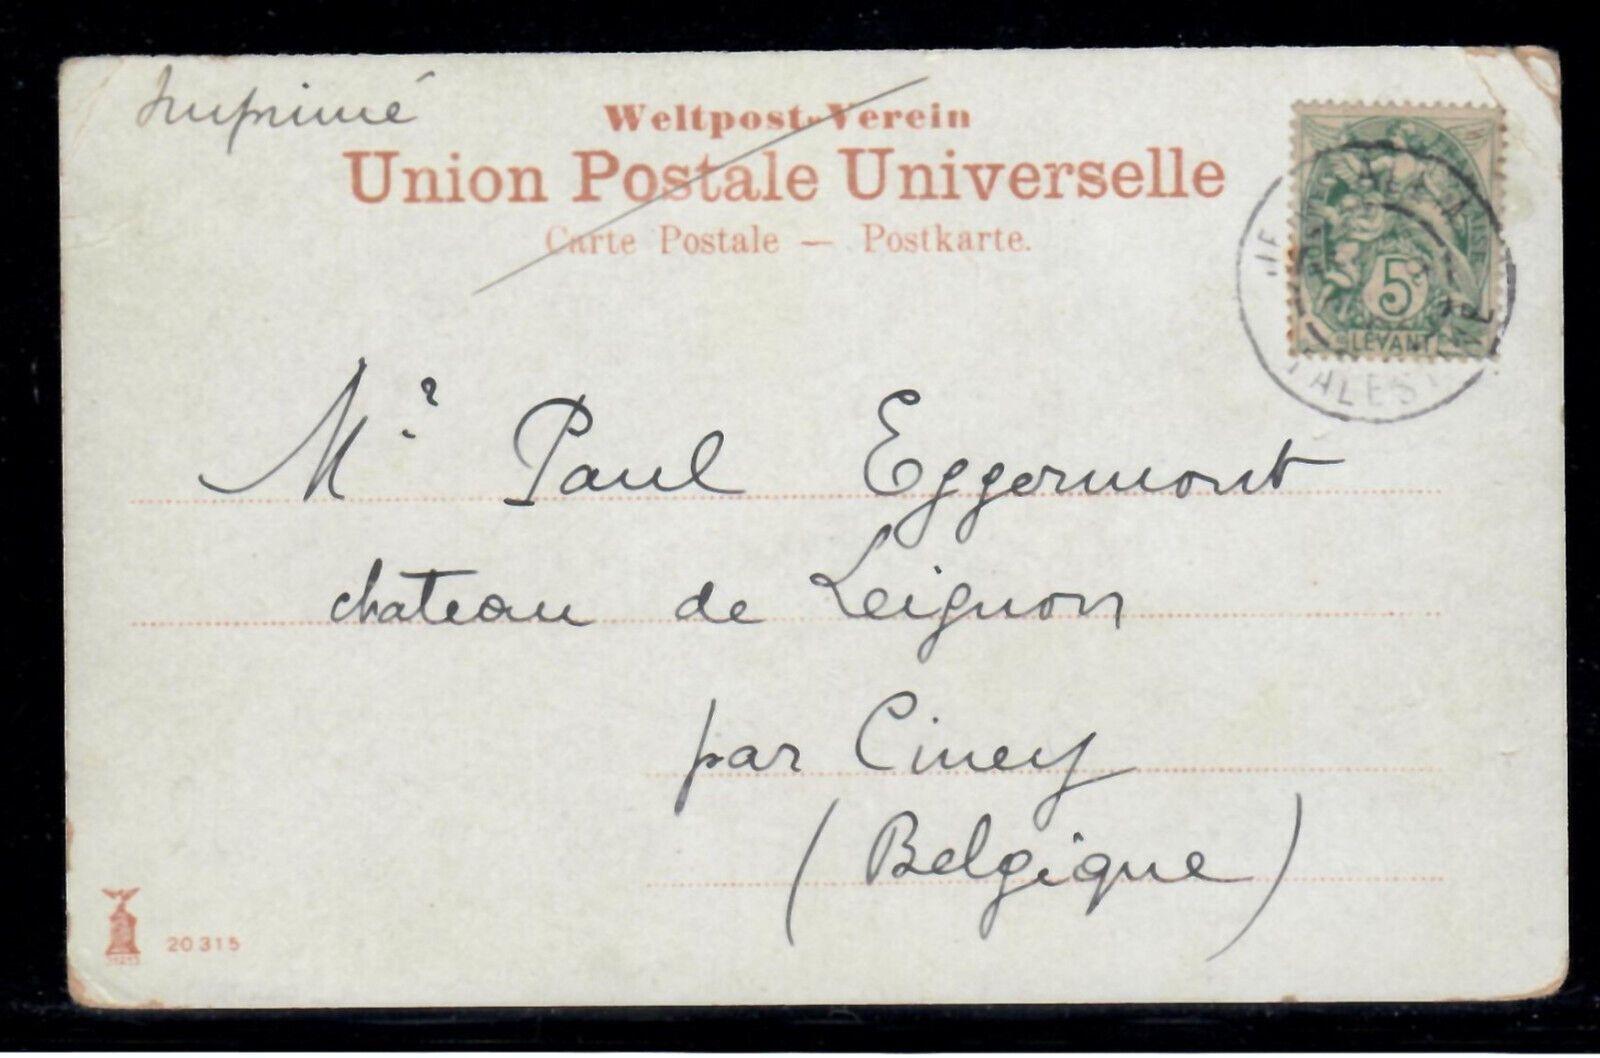 Imprimé
Weltpost-Verein
Union Postale Universelle
Carte Postale — Postkarte.
5
LEVANT
PALEST
Mr Paul Eggermont
chateau de Leignon
par Ciney
(Belgique)
20315